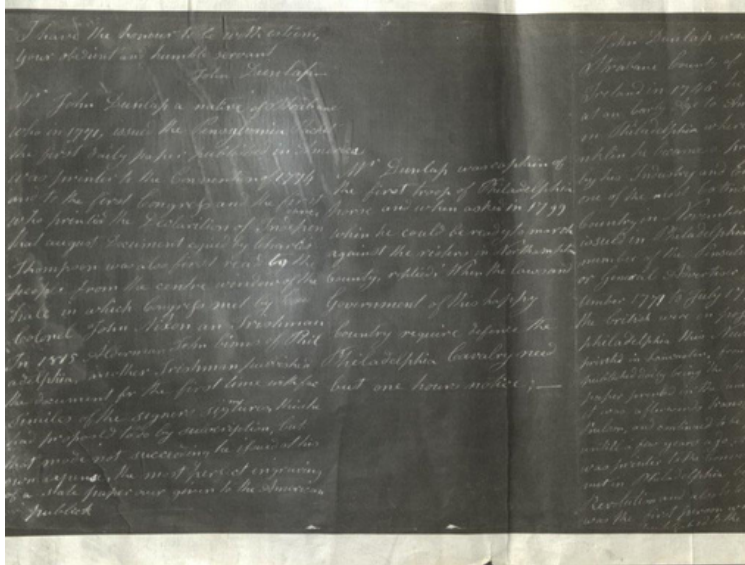 I have the honour to be with esteem,
your obedient and humble servant
John Dunlap
Mr. John Dunlap a native of Strabane
who in 1771, issued the Pennsylvania Packet
the first daily paper published in America
was printer to the Convention of 1774
and to the first Congress and the first
who printed the Declaration of Indepen
that august Document signed by Charles
Thompson was also first read by the
people from the centre window of the
hall in which Congress met by
Colonel John Nixon an Irishman
In 1815 Alderman John Binns of Phil
adelphia another Irishman published
the document for the first time with fac
similes of the signers
first proposed to do by subscription, but
that mode not succeeding he issued at his
own expense the most perfect engraving
of a state paper ever given to the American
publick
Mr. Dunlap was captain of
the first troop of Philadelphia
horse and when asked in 1799
when he could be ready to march
against the rioters in Northampton
County, replied, When the laws and
Government of this happy
Country require defence the
Philadelphia Cavalry need
but one hours notice;—
John Dunlap was
Strabane County of
Ireland in 1746 he
at an early age to
in Philadelphia where
he became a
by his Industry and
one of the most
Country in November
issued in Philadelphia
number of the
or General Advertiser
1771 to July 17
the British were in
philadelphia this
printed in Lancaster, from
published daily being the
paper printed in the
it was afterwards
and continued to be
untill a few years ago
was printer to the
met in Philadelphia
Revolution and also to
was the first person